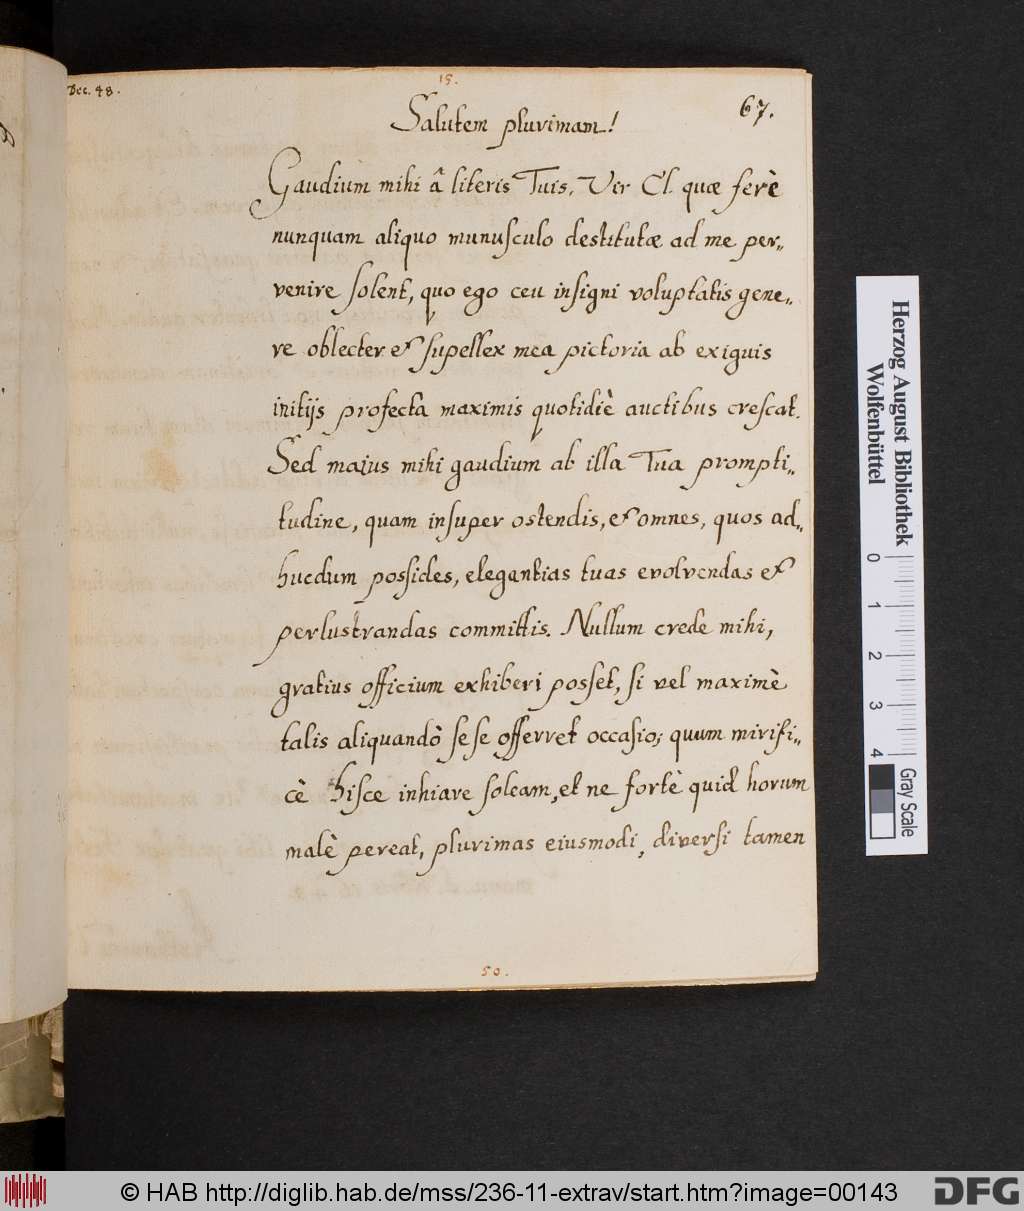 Dec. 48.
15.
67.
Salutem plurimam!
Gaudium mihi â literis Tuis, Vir Cl. quæ ferè
nunquam aliquo munusculo destitutæ ad me per„
venire solent, quo ego ceu insigni voluptatis gene„
re oblecter & supellex mea pictoria ab exiguis
initijs profectâ maximis quotidiè auctibus crescat.
Sed maius mihi gaudium ab illa Tua prompti„
tudine, quam insuper ostendis, & omnes, quos ad„
hucdum possides, elegantias tuas evolvendas &
perlustrandas committis. Nullum crede mihi,
gratius officium exhiberi posset, si vel maximè
talis aliquandò sese offerret occasio; quum mirifi„
cè hisce inhiare soleam, et ne fortè quid horum
malè pereat, plurimas eiusmodi, diversi tamen
50.
Herzog August Bibliothek
Wolfenbüttel
0 1 2 3 4
Gray Scale
© HAB http://diglib.hab.de/mss/236-11-extrav/start.htm?image=00143
DFG